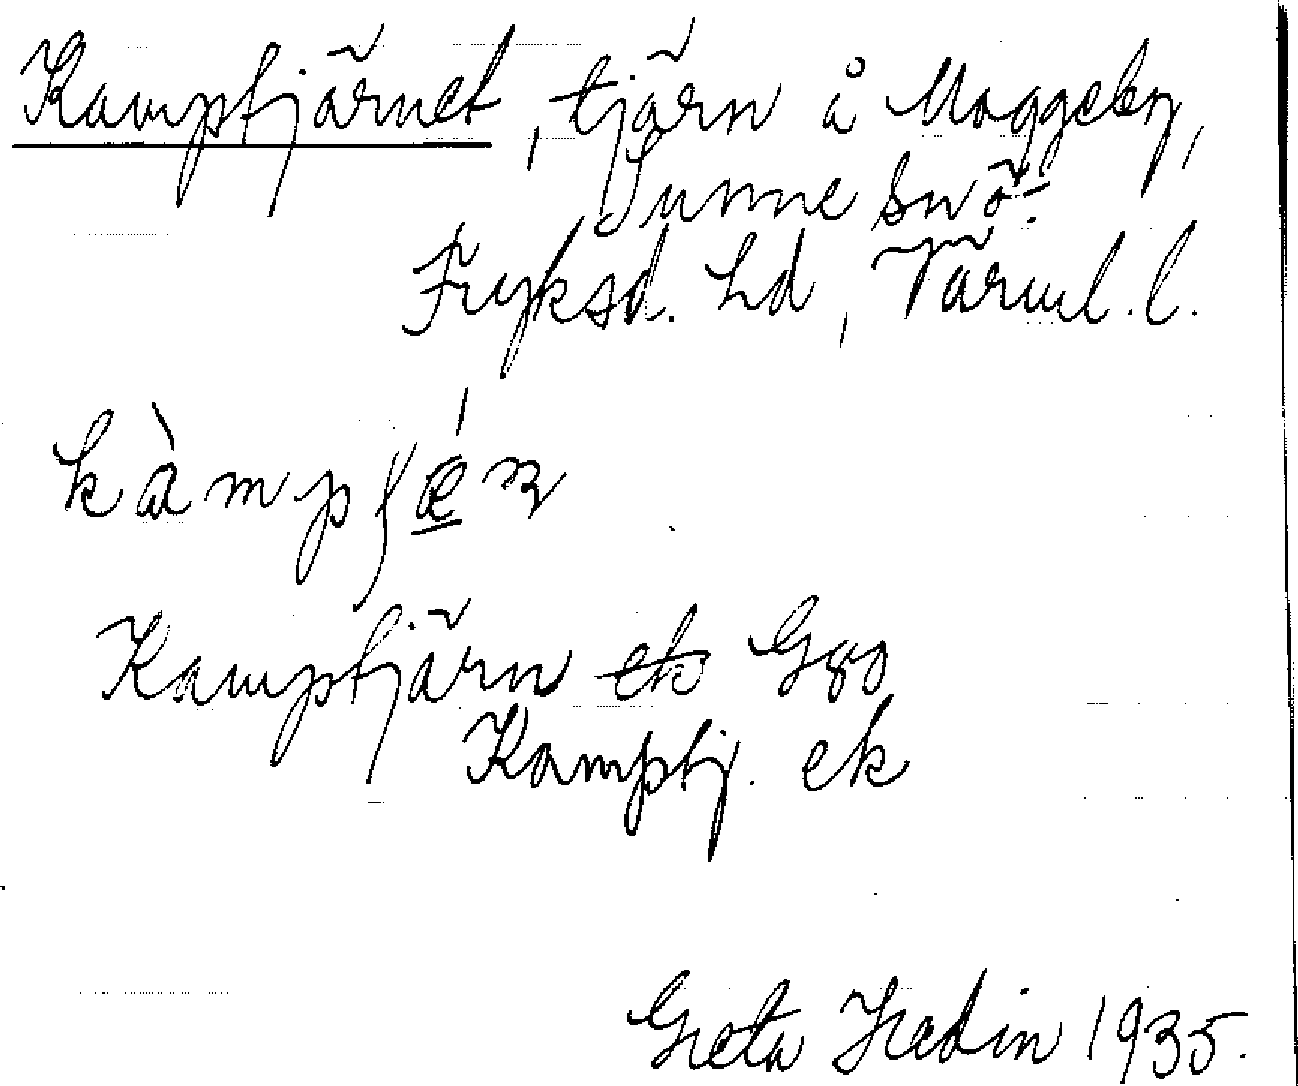 Kamptjärnet, tjärn å Maggeby,
Sunne sn ö.
Fryksd. hd, Värml. l.
kàmpʃǽn
Kamptjärn ek Ggo
Kamptj. ek
Greta Hedin 1935.